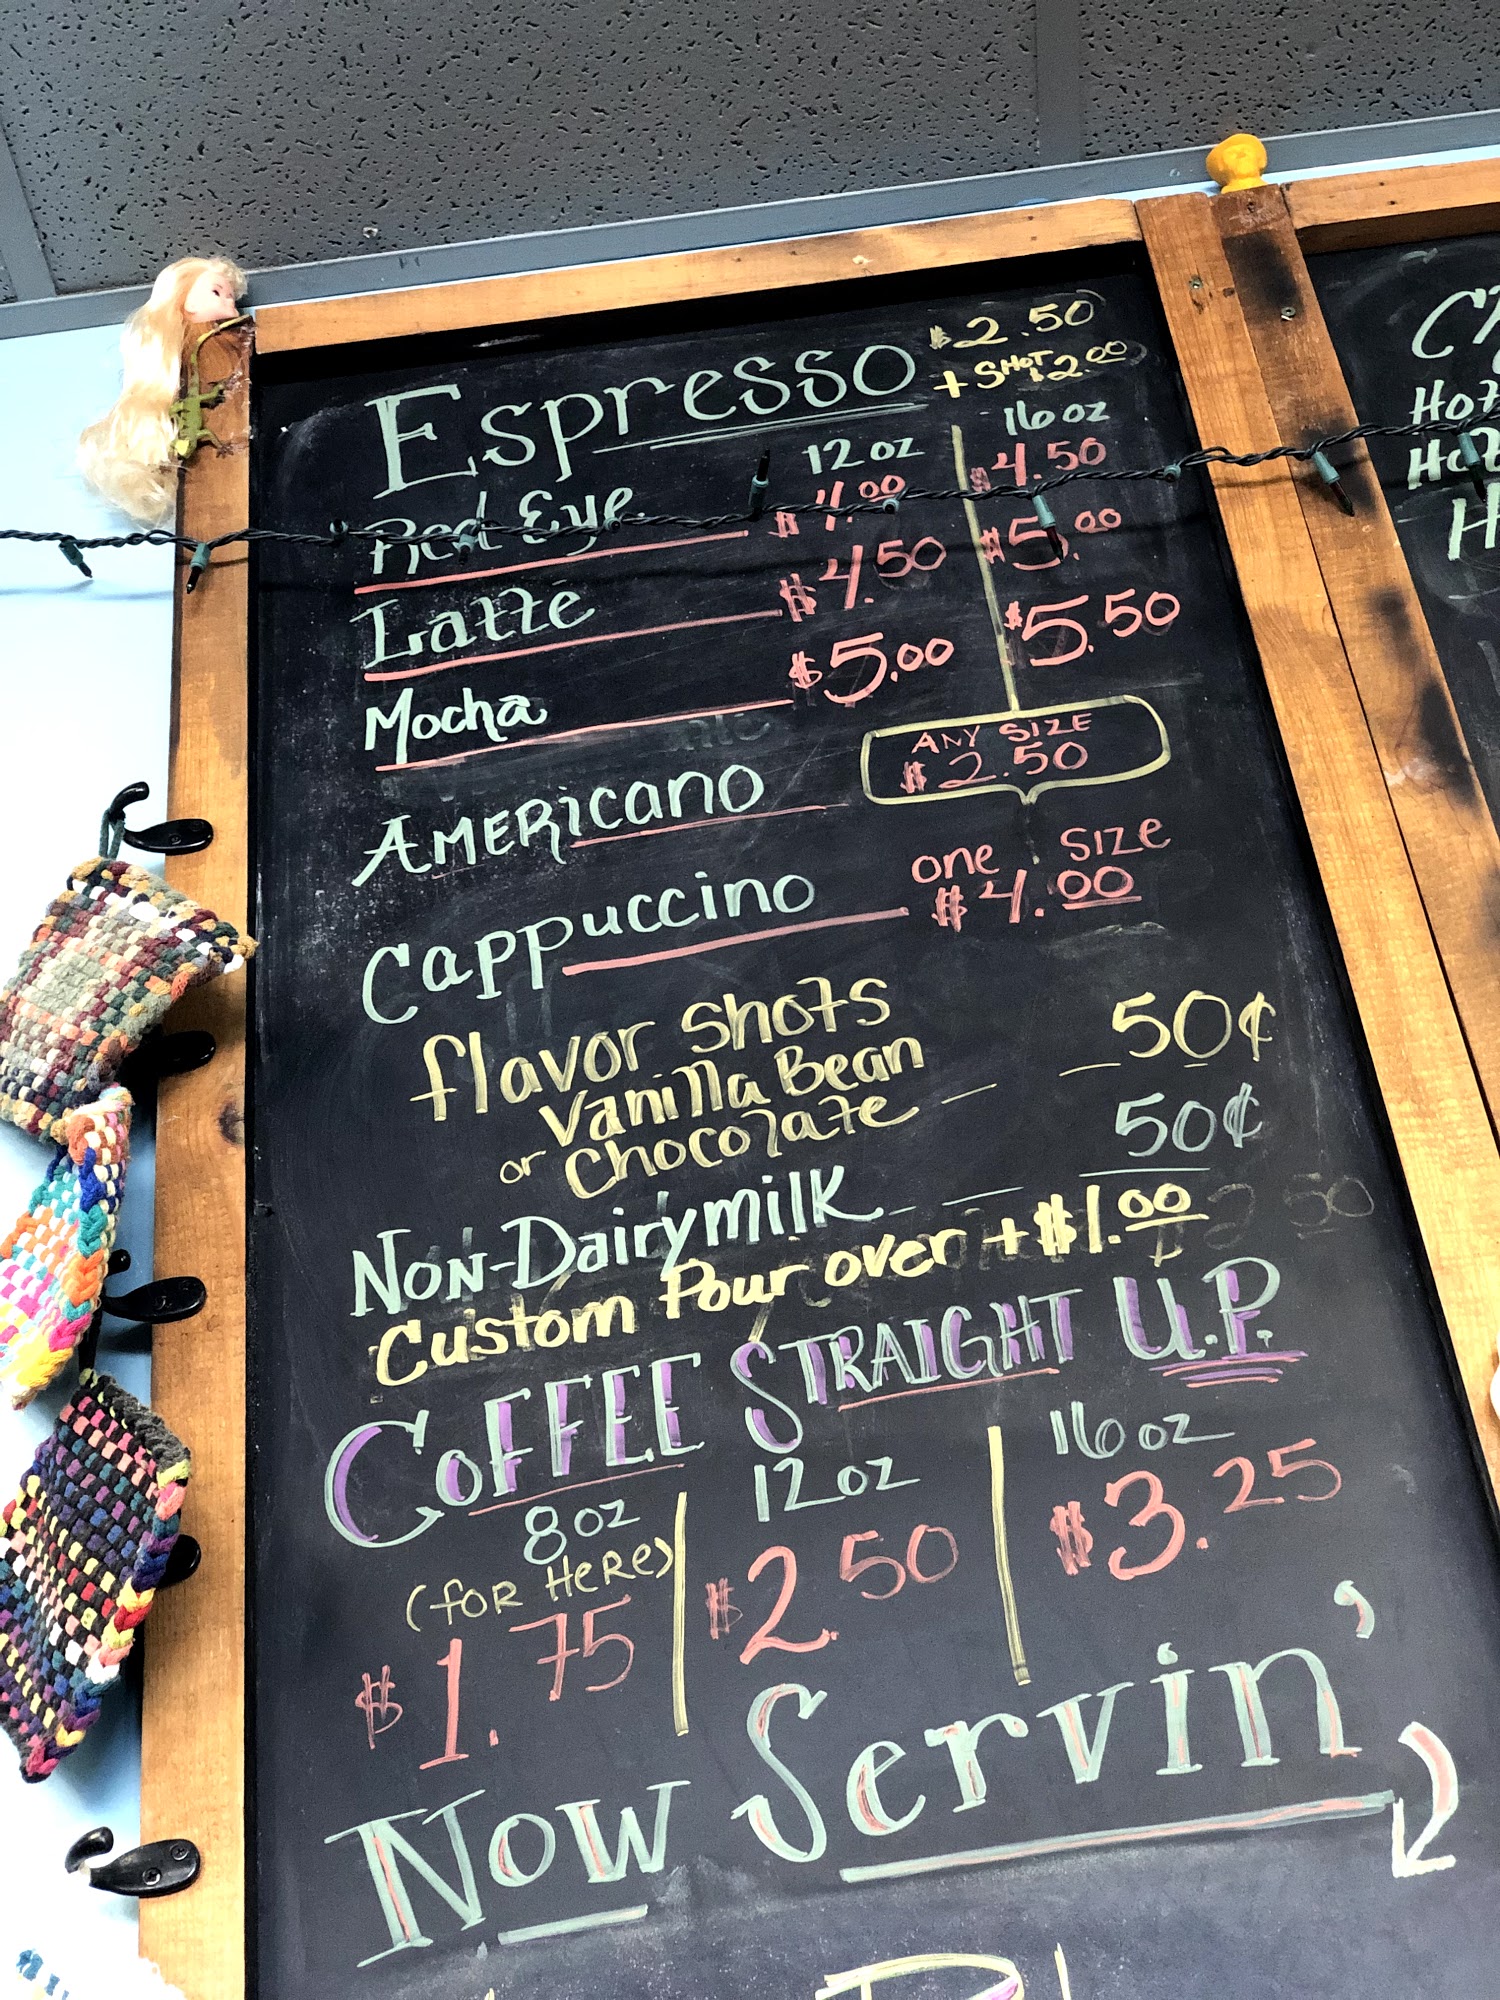 Espresso $2.50
+ SHOT $2.00
12 oz 16 oz
Red Eye $4.00 $4.50
Latte $4.50 $5.00
Mocha $5.00 $5.50
AMERicano ANY SIZE $2.50
Cappuccino one SIZE $4.00
flavor shots 50¢
Vanilla Bean
or Chocolate
Non-Dairy milk 50¢
Custom Pour over + $1.00
COFFEE STRAIGHT U.P.
8 oz 12 oz 16 oz
(FOR HeRe)
$1.75 $2.50 $3.25
Now Servin'
Hot
Hot